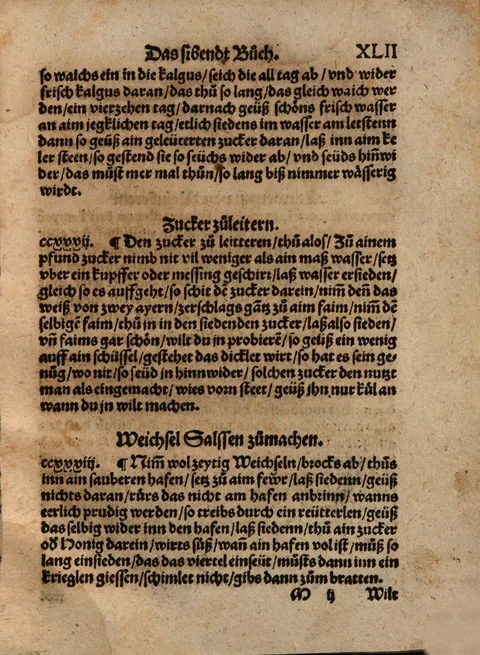 Das sibendt Bůch. XLII
so walchs ein in die kalgus/seich die all tag ab/vnd wider
frisch kalgus daran/das thů so lang/das gleich waich wer
den/ein vierzehen tag/darnach geüß schöns frisch wasser
an aim jegklichen tag/etlich siedens im wasser am letstenn
dann so geüß ain geleüterten zucker daran/laß inn aim ke
ler steen/so gestend sie so seüchs wider ab/vnd seüds hiñwi
der/das můst mer mal thůn/so lang biß nimmer wässerig
wirdt.
Zucker zůleitern.
ccxxxvij. ¶ Den zucker zů leitteren/thů alos/Zů ainem
pfund zucker nimb nit vil weniger als ain maß wasser/setz
vber ein kupffer oder messing geschirr/laß wasser ersieden/
gleich so es auffgeht/so schit dẽ zucker darein/nim̃ deñ das
weiß von zwey ayern/zerschlags gãtz zů aim faim/nim̃ dẽ
selbigẽ faim/thů in in den siedenden zucker/laß also sieden/
vñ faims gar schön/wilt du jn probierẽ/so geüß ein wenig
auff ain schüssel/gestehet das dicklet wirt/so hat es sein ge-
nůg/wo nit/so seüd in hinnwider/solchen zucker den nutzt
man als eingemacht/wies vorn steet/geüß jhn nur kůl an
wann du jn wilt machen.
Weichsel Salssen zůmachen.
ccxxxviij. ¶ Nim̃ wol zeytig Weichseln/brocks ab/thůs
inn ain sauberen hafen/setz zů aim fewr/laß siedenn/geüß
nichts daran/rürs das nicht am hafen anbrinn/wanns
eerlich prudig werden/so treibs durch ein reütterlen/geüß
das selbig wider inn den hafen/laß siedenn/thů ain zucker
oď Honig darein/wirts süß/wañ ain hafen vol ist/můß so
lang einsieden/das das viertel einseüt/můsts dann inn ein
krieglen giessen/schimlet nicht/gibs dann zům bratten.
M ij Wilt